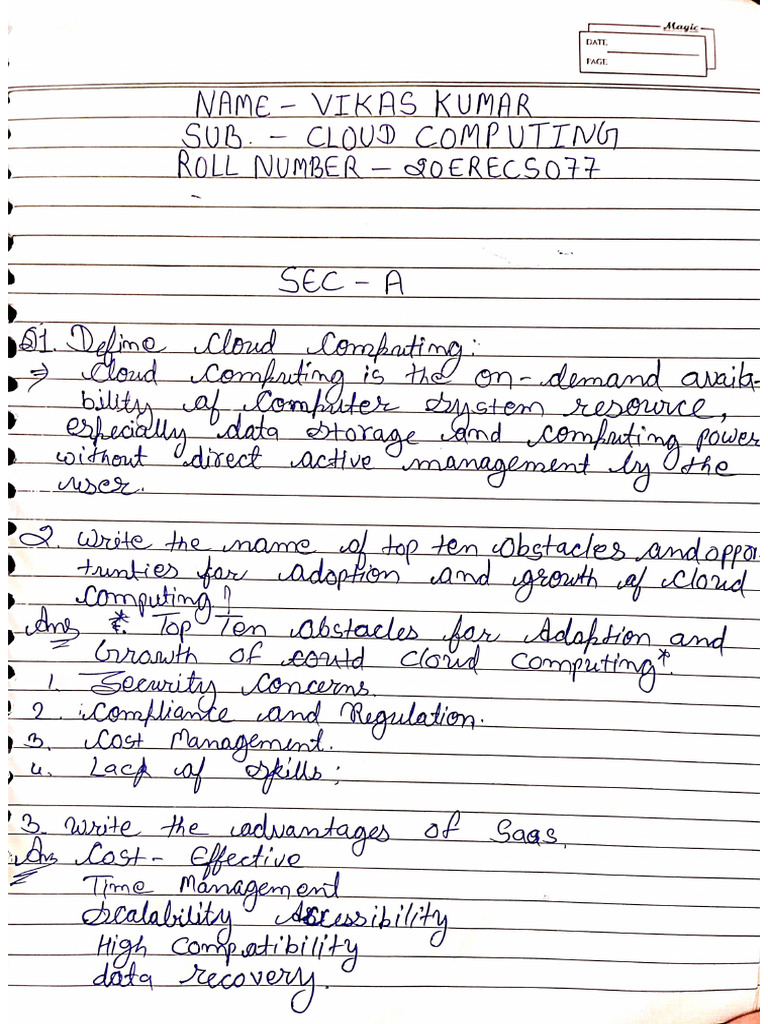 Magic
DATE
PAGE
NAME - VIKAS KUMAR
SUB. - CLOUD COMPUTING
ROLL NUMBER - 20ERECS077
SEC - A
Q1. Define Cloud Computing:
⇒ Cloud Computing is the on-demand availa-
bility of Computer System resource,
especially data storage and computing power
without direct active management by the
user.
2. Write the name of top ten obstacles and oppor
tunties for adoption and growth of cloud
computing?
Ans *. Top Ten Obstacles for Adoption and
Growth of could Cloud Computing*.
1. Security Concerns.
2. Compliance and Regulation.
3. Cost Management.
4. Lack of Skills;
3. Write the advantages of Saas.
Ans Cost - Effective
Time Management
Scalability Accessibility
High Compatibility
data recovery.